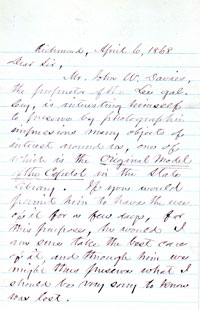 Richmond, April 6, 1868
Dear Sir,
Mr. John W. Davies,
the proprietor of the Lee gal-
lery, is interesting himself
to preserve by photographic
impressions many objects of
interest around us, one of
which is the Original Model
of the Capitol in the State
Library. If you would
permit him to have the use
of it for a few days, for
this purpose, he would I
am sure take the best care
of it, and through him we
might thus preserve what I
should be very sorry to know
was lost.